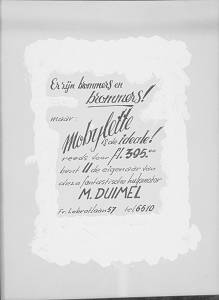 Er zijn brommers en
brommers!
maar:
Mobylette
is de ideale!
reeds voor fl. 395.—
bent U de eigenaar van
deze fantastische hulpmotor
M. DUIMEL
Fr. Lebretlaan 57 tel 6610